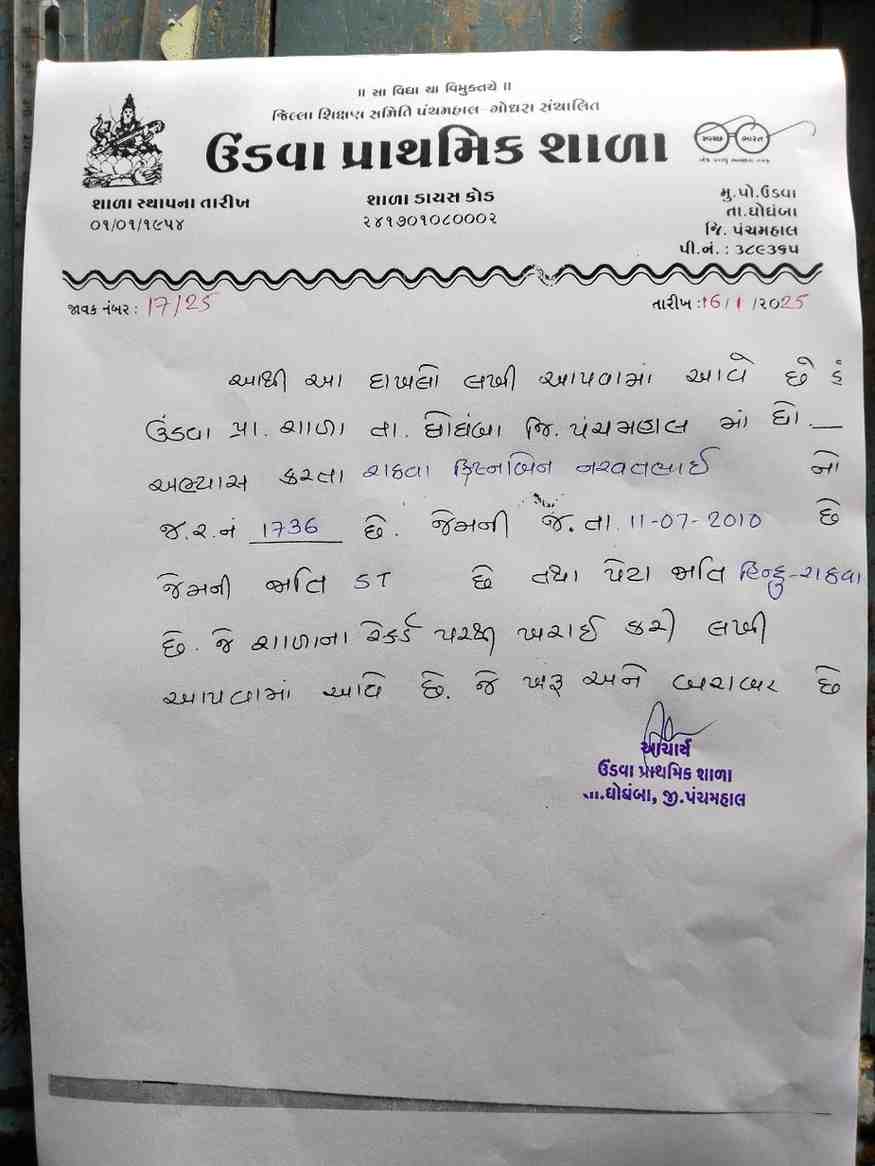 ॥ સા વિદ્યા યા વિમુક્તયે ॥
જિલ્લા શિક્ષણ સમિતિ પંચમહાલ-ગોધરા સંચાલિત
ઉંડવા પ્રાથમિક શાળા
સ્વચ્છ ભારત
એક કદમ સ્વચ્છતા તરફ
શાળા સ્થાપના તારીખ
૦૧/૦૧/૧૯૫૪
શાળા ડાયસ કોડ
૨૪૧૭૦૧૦૮૦૦૦૨
મુ.પો.ઉંડવા
તા.ઘોઘંબા
જિ. પંચમહાલ
પી.નં. : ૩૮૯૩૬૫
જાવક નંબર : 17/25
તારીખ : 16/1/૨૦25
આથી આ દાખલો લખી આપવામાં આવે છે કે
ઉંડવા પ્રા. શાળા તા. ઘોઘંબા જિ. પંચમહાલ માં ધો. __
અભ્યાસ કરતા રાઠવા ક્રિષ્નાબેન નરવતભાઈ નો
જ.ર.નં 1736 છે. જેમની જ. તા. 11-07-2010 છે
જેમની જાતિ ST છે તથા પેટા જાતિ હિન્દુ-રાઠવા
છે. જે શાળાના રેકર્ડ પરથી ખરાઈ કરી લખી
આપવામાં આવે છે. જે ખરૂ અને બરાબર છે
આચાર્ય
ઉંડવા પ્રાથમિક શાળા
તા.ઘોઘંબા, જી.પંચમહાલ